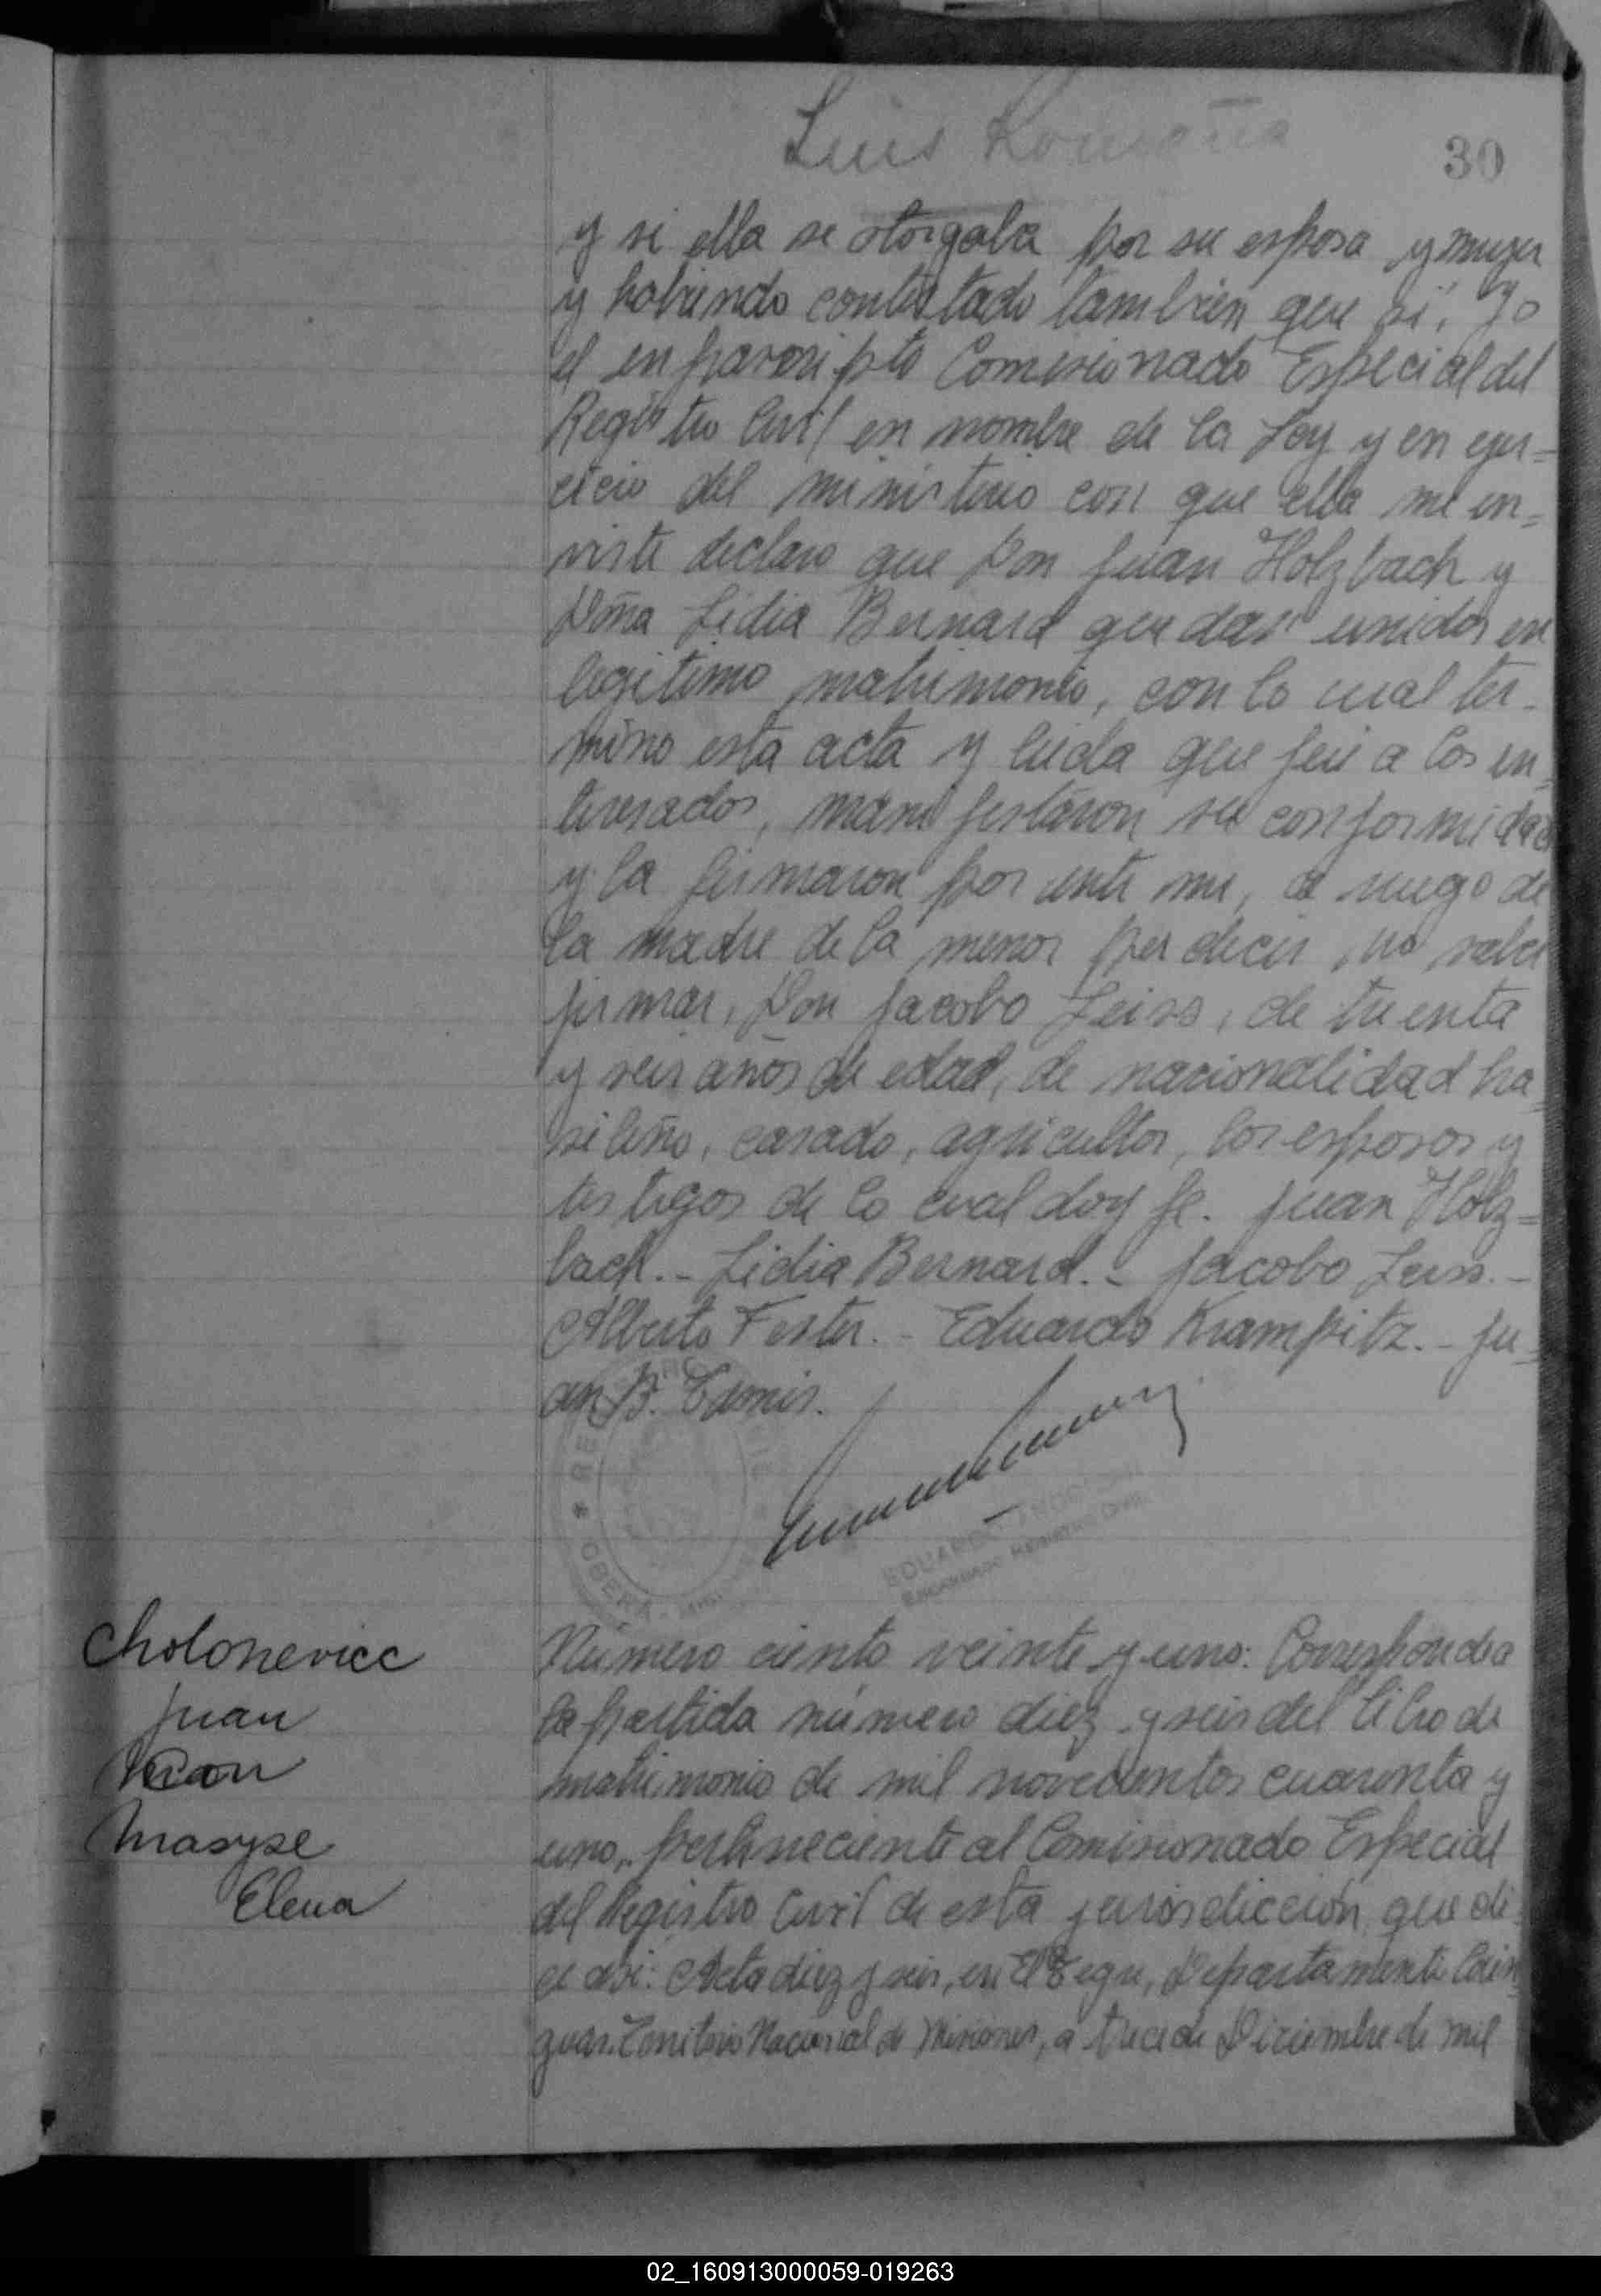 Luis
30
y si ella se otorgaba por su esposa y mujer
y habiendo contestado tambien que si, Yo
el enfrascripto Comisionado Especial del
Registro Civil en nombre de la Ley y en ejer=
cicio del ministerio con que ella me en=
viste declaro que Don Juan Holzbach y
Doña Lidia Bernard quedan unidos en
legitimo matrimonio, con lo cual ter-
mino esta acta y leida que fue a los in=
teresados, manifestaron su conformidad
y la firmaron por ante mi, a ruego de
la madre de la menor por decir no saber
firmar, Don Jacobo Leiss, de treenta
y seis años de edad, de nacionalidad bra=
sileño, casado, agricultor, los esposos y
testigos de lo cual doy fe. Juan Holz=
bach.- Lidia Bernard.- Jacobo Leiss.-
Alberto Fester.- Eduardo Krampitz.- Ju=
an B.
OBERA
EDUARDO
Encargado Registro Civil
Cholonevicc
Juan
con
Masyse
Elena
Número ciento veinte y uno: Corresponde a
la partida número diez y seis del libro de
matrimonio de mil novecientos cuarenta y
uno, perteneciente al Comisionado Especial
del Registro Civil de esta jurisdicción, que di=
ce asi: Acta diez y seis, en Departamento Cain=
guas, Territorio Nacional de Misiones, a trece de Diciembre de mil
02_160913000059-019263